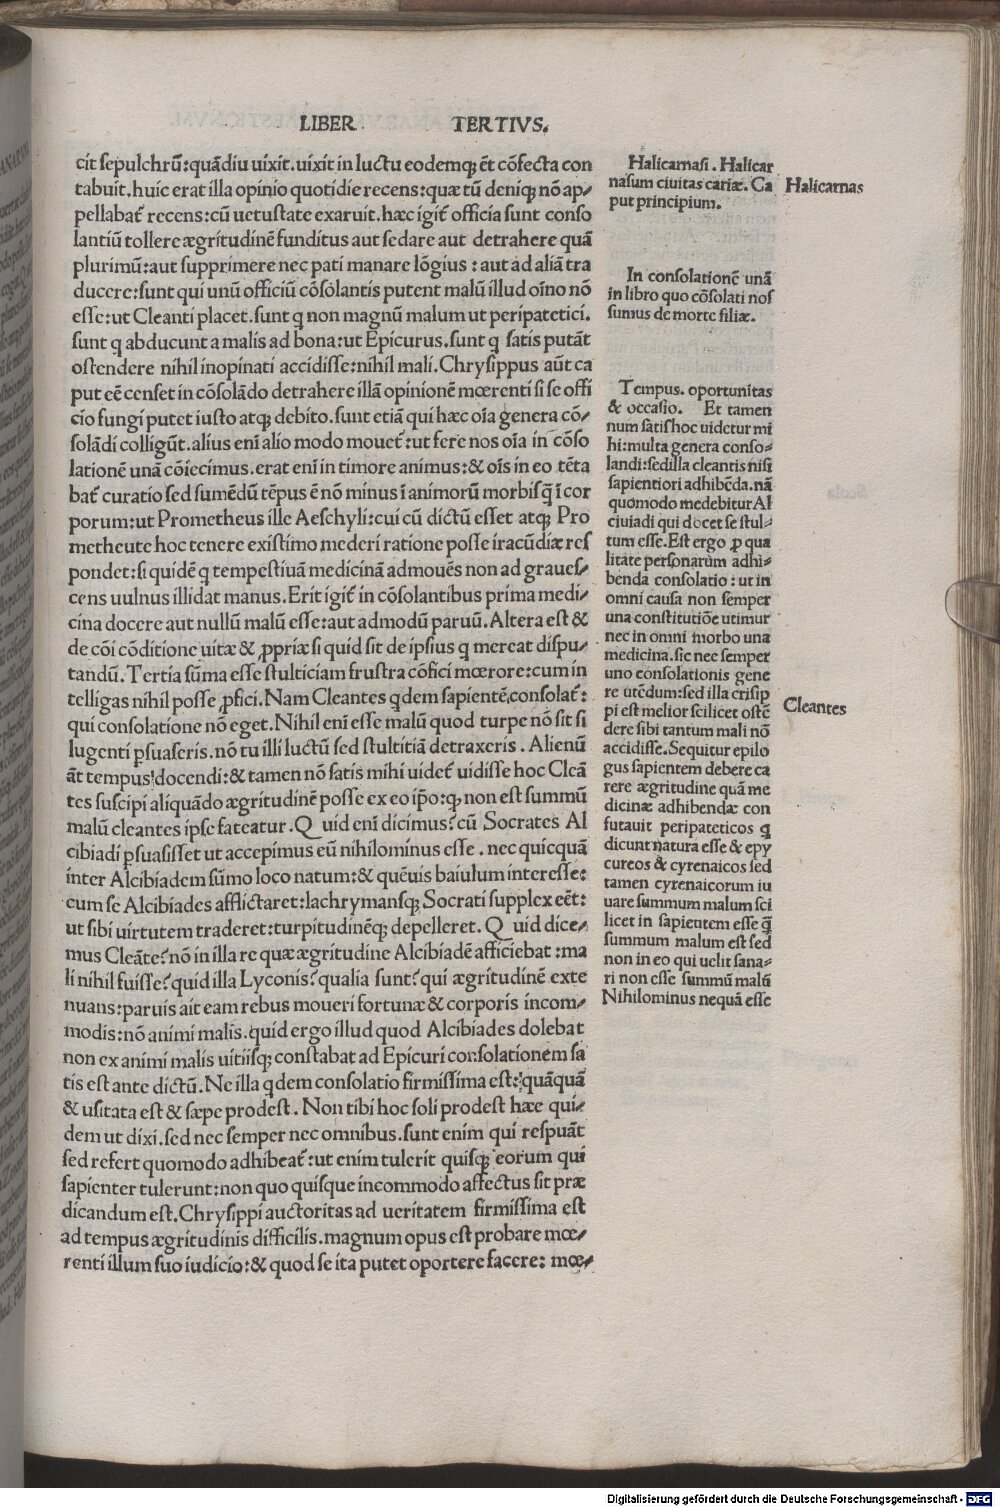 LIBER TERTIVS.
cit sepulchrū:quādiu uixit.uixit in luctu eodemq; ēt cōfecta con
tabuit.huic erat illa opinio quotidie recens:quæ tū deniq; nō ap-
pellabat̄ recens:cū uetustate exaruit.hæc igit̄ officia sunt conso
lantiū tollere ægritudinē funditus aut sedare aut detrahere quā
plurimū:aut supprimere nec pati manare lōgius : aut ad aliā tra
ducere:sunt qui unū officiū cōsolantis putent malū illud oīno nō
esse:ut Cleanti placet.sunt q non magnū malum ut peripatetici.
sunt q abducunt a malis ad bona:ut Epicurus.sunt q satis putāt
ostendere nihil inopinati accidisse:nihil mali.Chrysippus aūt ca
put eē censet in cōsolādo detrahere illā opinionē mœrenti si se offi
cio fungi putet iusto atq; debito.sunt etiā qui hæc oīa genera cō-
solādi colligūt.alius enī alio modo mouet̄:ut fere nos oīa in cōso
lationē unā cōiecimus.erat enī in timore animus:& oīs in eo tēta
bat̄ curatio sed sumēdū tēpus ē nō minus ī animorū morbis q̄ ī cor
porum:ut Prometheus ille Aeschyli:cui cū dictū esset atq; Pro
metheute hoc tenere existimo mederi ratione posse iracūdiæ res
pondet:si quidē q tempestiuā medicinā admouēs non ad graues-
cens uulnus illidat manus.Erit igit̄ in cōsolantibus prima medi-
cina docere aut nullū malū esse:aut admodū paruū.Altera est &
de cōi cōditione uitæ & ꝓpriæ si quid sit de ipsius q mereat dispu-
tandū.Tertia sūma esse stulticiam frustra cōfici mœrore:cum in
telligas nihil posse ꝓfici.Nam Cleantes qdem sapientē consolat̄:
qui consolatione nō eget.Nihil enī esse malū quod turpe nō sit si
lugenti ꝑsuaseris.nō tu illi luctū sed stultitiā detraxeris . Alienū
āt tempus docendi:& tamen nō satis mihi uidet̄ uidisse hoc Cleā
tes suscipi aliquādo ægritudinē posse ex eo ip̄o:q; non est summū
malū cleantes ipse fateatur.Quid enī dicimus?cū Socrates Al
cibiadi ꝑsuasisset ut accepimus eū nihilominus esse . nec quicquā
inter Alcibiadem sūmo loco natum:& quēuis baiulum interesse:
cum se Alcibiades afflictaret:lachrymansq; Socrati supplex eēt:
ut sibi uirtutem traderet:turpitudinēq; depelleret. Quid dice-
mus Cleāte?nō in illa re quæ ægritudine Alcibiadē afficiebat :ma
li nihil fuisse?quid illa Lyconis?qualia sunt?qui ægritudinē exte
nuans:paruis ait eam rebus moueri fortunæ & corporis incom-
modis:nō animi malis.quid ergo illud quod Alcibiades dolebat
non ex animi malis uitiisq; constabat ad Epicuri consolationem sa
tis est ante dictū. Ne illa qdem consolatio firmissima est:quāquā
& usitata est & sæpe prodest. Non tibi hoc soli prodest hæc qui-
dem ut dixi.sed nec semper nec omnibus.sunt enim qui respuāt
sed refert quomodo adhibeat̄:ut enim tulerit quisq; eorum qui
sapienter tulerunt:non quo quisque incommodo affectus sit præ
dicandum est.Chrysippi auctoritas ad ueritatem firmissima est
ad tempus ægritudinis difficilis.magnum opus est probare mœ-
renti illum suo iudicio:& quod se ita putet oportere facere: mœ-
Halicarnasi. Halicar
nasum ciuitas cariæ. Ca
put principium.
Halicarnas
In consolationē unā
in libro quo cōsolati nos
sumus de morte filiæ.
Tempus. oportunitas
& occasio. Et tamen
num satis hoc uidetur mi
hi:multa genera conso-
landi:sed illa cleantis nisi
sapientiori adhibēda.nā
quomodo medebitur Al
ciuiadi qui docet se stul-
tum esse.Est ergo ꝓ qua
litate personarum adhi-
benda consolatio : ut in
omni causa non semper
una constitutiōe utimur
nec in omni morbo una
medicina.sic nec semper
uno consolationis gene
re utēdum:sed illa crisip
pi est melior scilicet ostē
dere sibi tantum mali nō
accidisse.Sequitur epilo
gus sapientem debere ca
rere ægritudine quā me
dicinæ adhibendæ con
futauit peripateticos q
dicunt natura esse & epy
cureos & cyrenaicos sed
tamen cyrenaicorum iu
uare summum malum sci
licet in sapientem esse q̄
summum malum est sed
non in eo qui uelit sana-
ri non esse summū malū
Nihilominus nequā esse
Cleantes
Digitalisierung gefördert durch die Deutsche Forschungsgemeinschaft - DFG